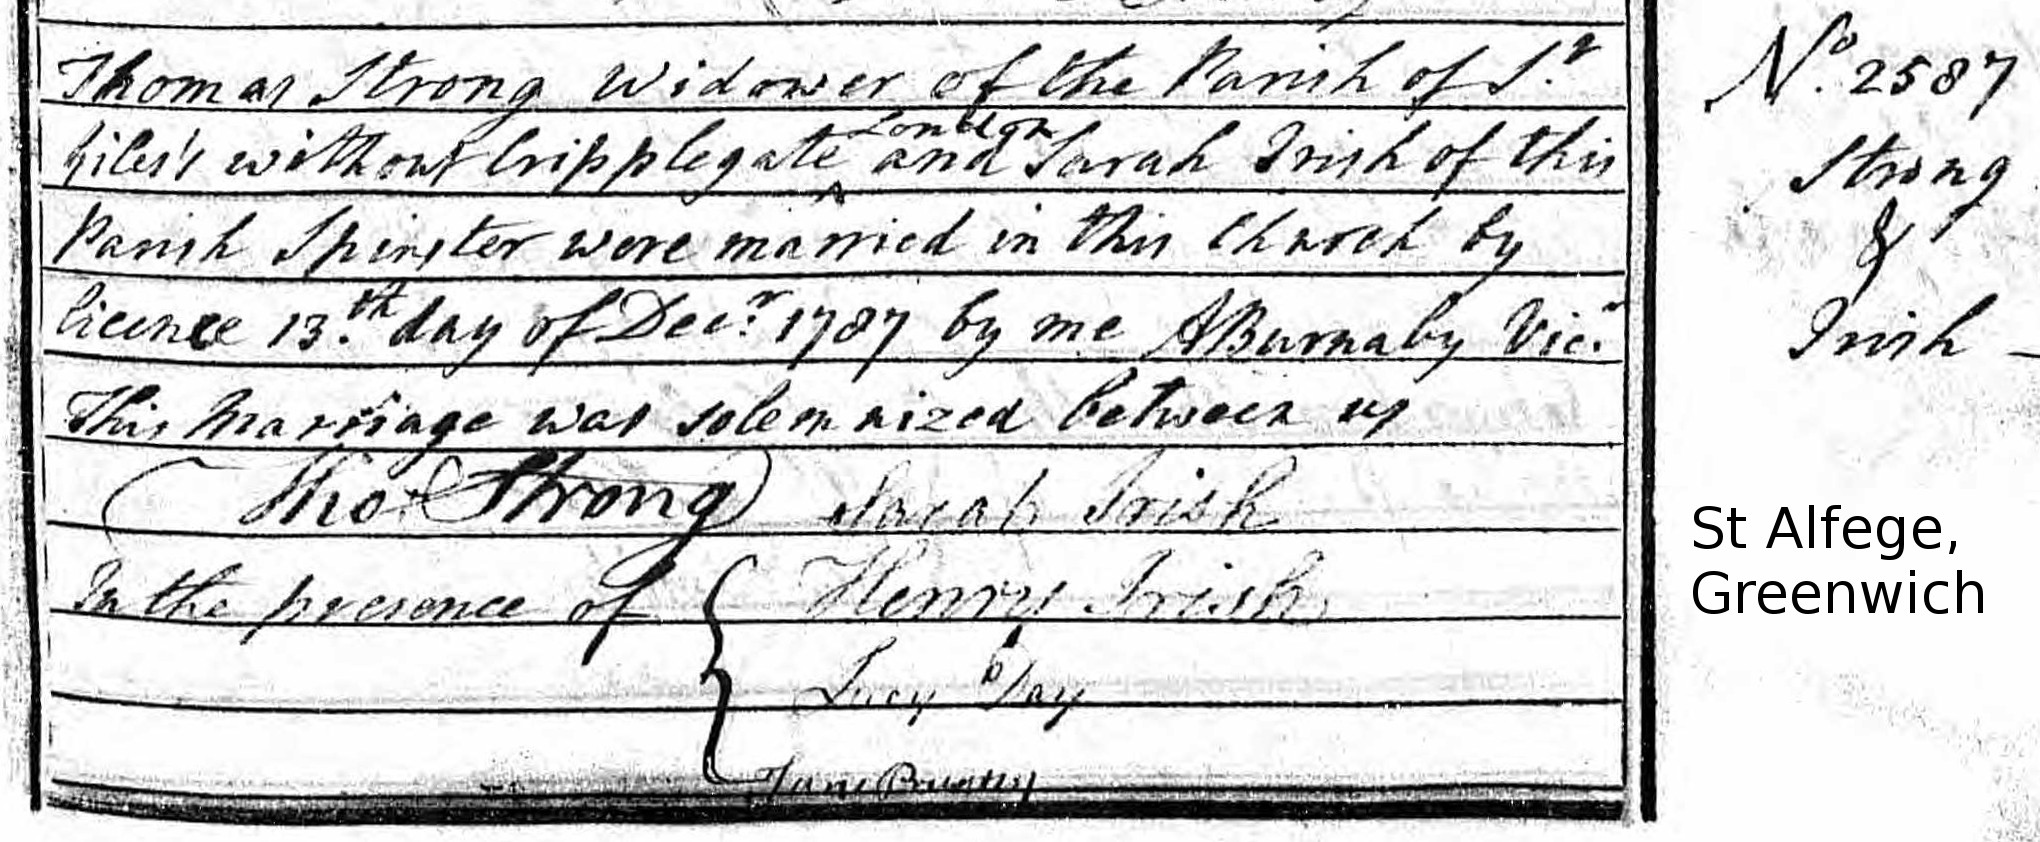 Thomas Strong Widower of the Parish of St
Giles's without Cripplegate London and Sarah Irish of this
Parish Spinster were married in this Church by
licence 13.th day of Decr. 1787 by me ABurnaby Vicr.
This Marriage was solemnized between us
Tho Strong Sarah Irish
In the presence of Henry Irish
Lucy
Jane
No. 2587
Strong
&
Irish
St Alfege,
Greenwich